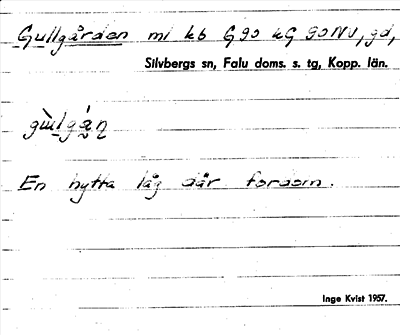 Gullgården mi kb G 90 kG 90NV, gd,
Silvbergs sn, Falu doms. s. tg, Kopp. län.
En hytta låg där fordom.
Inge Kvist 1957.